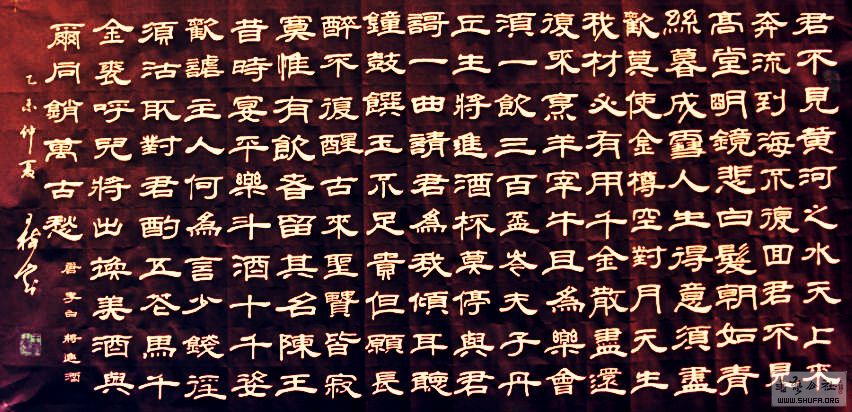 君不見黃河之水天上來
奔流到海不復回君不見
高堂明鏡悲白髮朝如青
絲暮成雪人生得意須盡
歡莫使金樽空對月天生
我材必有用千金散盡還
復來烹羊宰牛且為樂會
須一飲三百盃岑夫子丹
丘生將進酒杯莫停與君
謌一曲請君為我傾耳聽
鐘鼓饌玉不足貴但願長
醉不復醒古來聖賢皆寂
寞惟有飲者留其名陳王
昔時宴平樂斗酒十千恣
歡謔主人何為言少錢徑
須沽取對君酌五花馬千
金裘呼兒將出換美酒與
爾同銷萬古愁
書李白將進酒
乙未仲夏
WWW.SHUFA.ORG